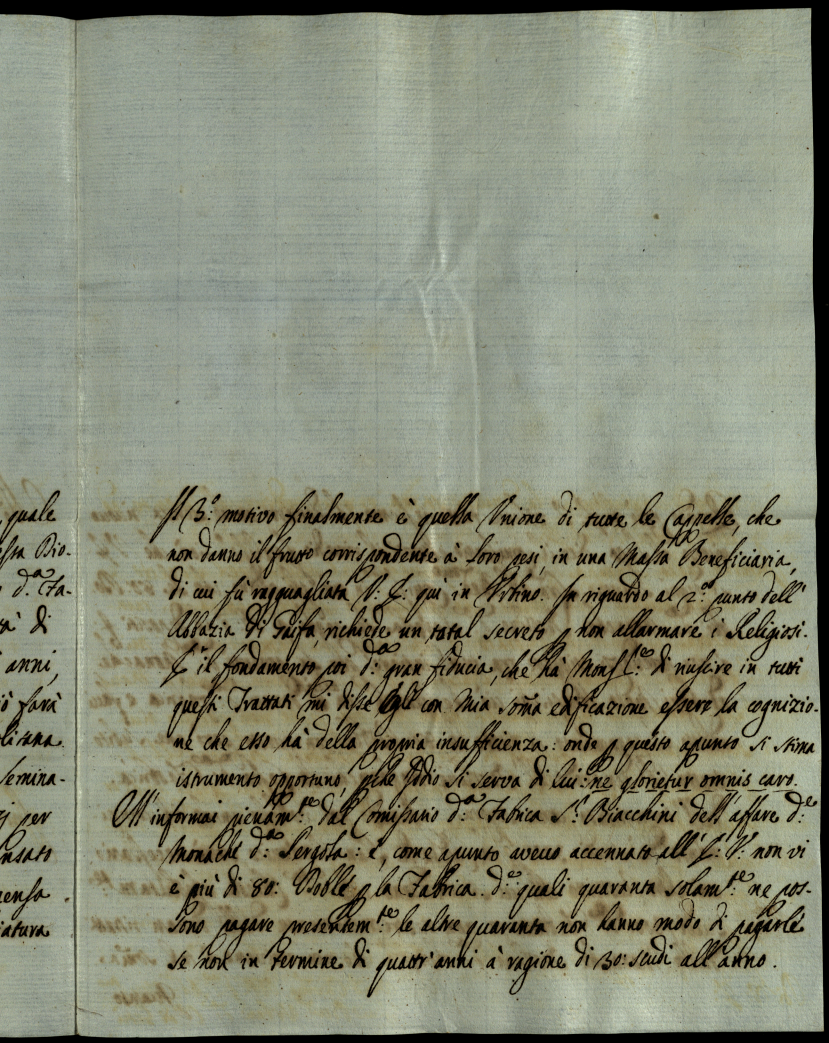 quale
esta Dio-
d.ª Fa-
tà di
anni,
iò farà
litana
Semina-
per
nsato
mensa
iatura
Il 3.º motivo finalmente è quella Unione di tutte le Cappelle, che
non danno il frutto corrispondente à loro pesi, in una Massa Beneficiaria,
di cui fù ragguagliata V: E: quì in Urbino. In riguardo al 2.º punto dell'
Abbazia di Gaifa, richiede un total secreto p non allarmare i Religiosi.
E' il fondamento poi d.ª gran fiducia, che hà Mons.re di riuscire in tutti
questi Trattati mi disse Egli con mia som̃a edificazione essere la cognizio-
ne che esso hà della propria insufficienza: onde p questo apunto si stima
istrumento opportuno, pche Iddio si serva di lui: ne glorietur omnis caro.
M'informai pienam.te dal Com̃issario d.ª Fabrica S.r Biacchini dell'affare d.e
Monache d.ª Pergola: e, come apunto avevo accennato all'E: V: non vi
è più di 80: Doble p la Fabrica. d.e quali quaranta solam.te ne pos-
sono pagare presentem.te le altre quaranta non hanno modo di pagarle
se non in termine di quattr'anni à ragione di 30: scudi all'anno.